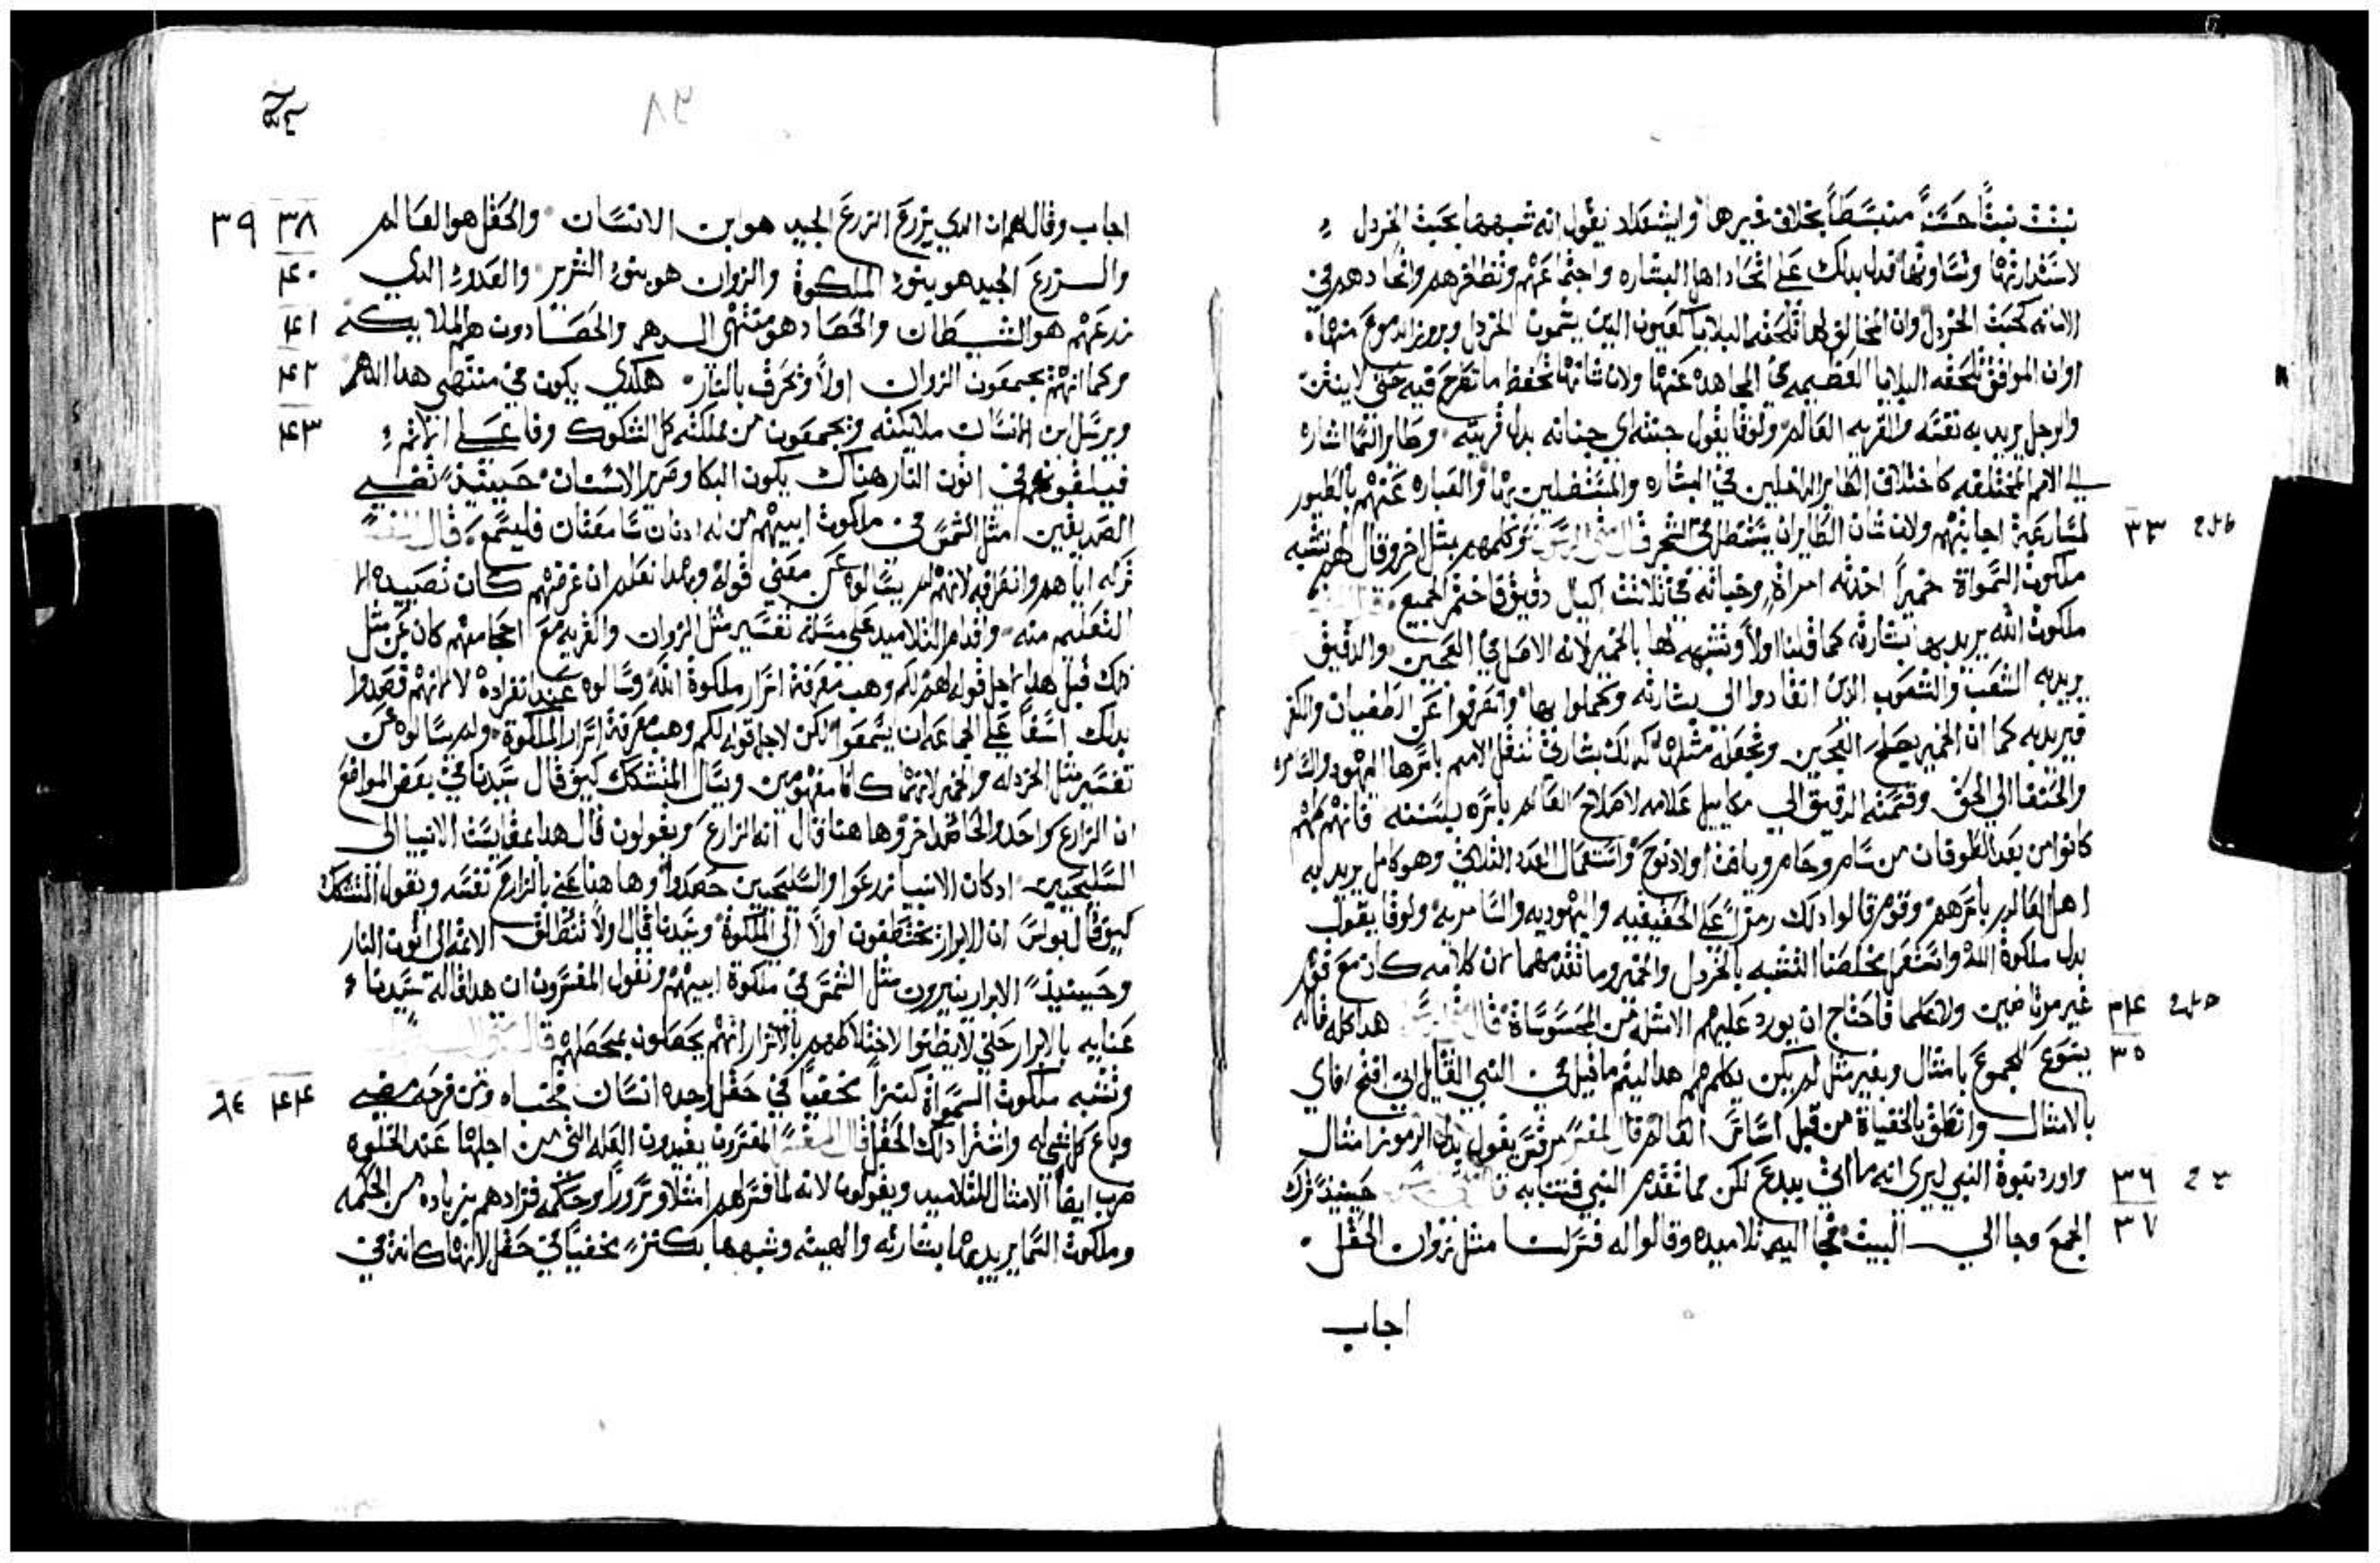 نبتت نبتاً حسناً منبسطاً بخلاف غيرها وايشعداد يقول انه شبهها بحبت الخردل
لاستدارتها وتساوتها فدل بدلك على اتحاد اهل البشاره واجتماعهم وتظافرهم واتحادهم في
الامانه كحبت الخردل وان المخالف لها تلحقه البلايا كالعيون الدين يشمون الخردل وبروز الدموع منها
اوان الموافق تلحقه البلايا العظيمه في المجاهده عنها ولان شانها تحفظ ما تطرح فيه حتى لا ينتن
والرجل يريد به نفسه والقريه العالم ولوقا يقول جنته اي جنانه بدل قريته وطاير السما اشاره
الى الامم المختلفه كاختلاف الطاير الداخلين في البشاره والمستظلين بها والعباره عنهم بالطيور
لمسارعة اجابتهم ولان شان الطاير ان يستظل في الشجر قال متى الرسول وكلمهم بمثل اخر وقال لهم تشبه ٣٣
ملكوت السمواة خميراً اخدته امراة وخباته في تلاتت اكيال دقيق فاختمر الجميع قال
ملكوت الله يريد بها بشارته كما قلنا اولاً وتشبهه لها بالخمير لانه الاصل في العجين والدقيق
يريد به الشعب والشعوب الدين انقادوا الى بشارته وكملوا بها وانفرقوا عن الطغيان والكفر
فيريد به كما ان الخمير يصلح العجين وتجعله مثلها كدلك بشارتي تنقل الامم باسرها اليهود والسامره
والحنفا الى الحق وقسمته الدقيق الى مكاييل علامه لاصلاح العالم باسره بسننه فانهم كلهم
كانوا من بعد الطوفان من سام وحام ويافت اولاد نوح واستعمال العدد التلاتي وهو كامل يريد به
اهل العالم باسرهم وقوم قالوا دلك رمز على الحنيفيه واليهوديه والسامريه ولوقا يقول
بدل ملكوة الله واستعمل مخلصنا التشبه بالخردل والخمير وما تقدمهما لان كلامه كان مع قوم
غير مرتاضين ولا علما فاحتاج ان يورد عليهم الامتله من المحسوساة قال هدا كله قاله ٣٤
يسوع للجموع بامتال وبغير متل لم يكن يكلمهم هدا ليتم ما قيل في النبي القايل اني افتح فاي ٣٥
بالامتال وانطق بالخفياة من قبل اساس العالم قال المفسر مرقس يقول بدل الرموز امتال
واورد نبوة النبي ليرى انه ما اتى ببدع لكن مما تقدم النبي فتنبا به قال حينيدً ترك ٣٦
الجمع وجا الى البيت فجا اليه تلاميده وقالوا له فسر لنا متل زوان الحقل ٣٧
اجاب
اجاب وقال لهم ان الدي يزرع الزرع الجيد هو ابن الانسان والحقل هو العالم ٣٨ ٣٩
والزرع الجيد هو بنوا الملكوة والزوان هو بنوا الشرير والعدو الدي ٤٠
زرعهم هو الشيطان والحصاد هو منتهى الدهر والحصادون هم الملايكه ٤١
وكما انهم يجمعون الزوان اولاً وتحرق بالنار هكدى يكون في منتهى هدا الدهر ٤٢
ويرسل ابن الانسان ملايكته وتجمعون من مملكته كل الشكوك وفاعلى الاتم ٤٣
فيلقونهم في اتون النار هناك يكون البكا وصرير الاسنان حينيدً تضي
الصديقين متل الشمس في ملكوت ابيهم من له ادنان سامعتان فليسمع قال
تركه اياهم وانفراقه لانهم لم يسالوه عن معنى قوله وبهدا نعلم ان غرضهم كان تصييده لا
التعليم منه واقدام التلاميد على مسلته تفسير متل الزوان والقريه مع احجامهم كان عن متل
دلك قبل هدا لاجل قوله لهم لكم وهب معرفة اسرار ملكوة الله وسالوه عند انفراده لا لانهم قصدوا
بدلك اسفاً على الجماعه ان يسمعوا لكن لاجل قوله لكم وهب معرفة اسرار الملكوة ولم يسالوه عن
تفسير متل الخردله والخمير لانهما كانا مفهومين ويسال المتشكك كيف قال سيدنا في بعض المواضع
ان الزارع واحد والحاصد اخر وها هنا قال انه الزارع ويقولون قال هدا بمقايست الانبيا الى
السليحيين ادكان الانبيا زرعوا والسليحيين حصدوا وها هنا عنى بالزارع نفسه ويقول المتشكك
كيف قال بولس ان الابرار يختطفون اولاً الى الملكوة وسيدنا قال اولاً تنطلق الاتمه الى اتون النار
وحينيدً الابرار ينيرون متل الشمس في ملكوة ابيهم ونقول المفسرون ان هدا قاله سيدنا
عنايه بالابرار حتى لا يظنوا لاختلاطهم بالاشرار انهم يحصلون بمحصلهم قال
وتشبه ملكوت السمواة كنزاً مخفياً في حقل وجده انسان فخباه ومن فرحه مضى ٤٤
وباع كل شي له واشترا دلك الحقل قال المفسر المفسرون يفيدون العله التي من اجلها عند الخلوه
ضرب ايضاً الامتال للتلاميد ويقولون لانه لما فسر لهم امتلا وسروراً وحكمه فزادهم زياده من الحكمه
وملكوت السما يريد بها بشارته والهيته وشبهها بكنزً مخفياً في حقل لانها كانت في